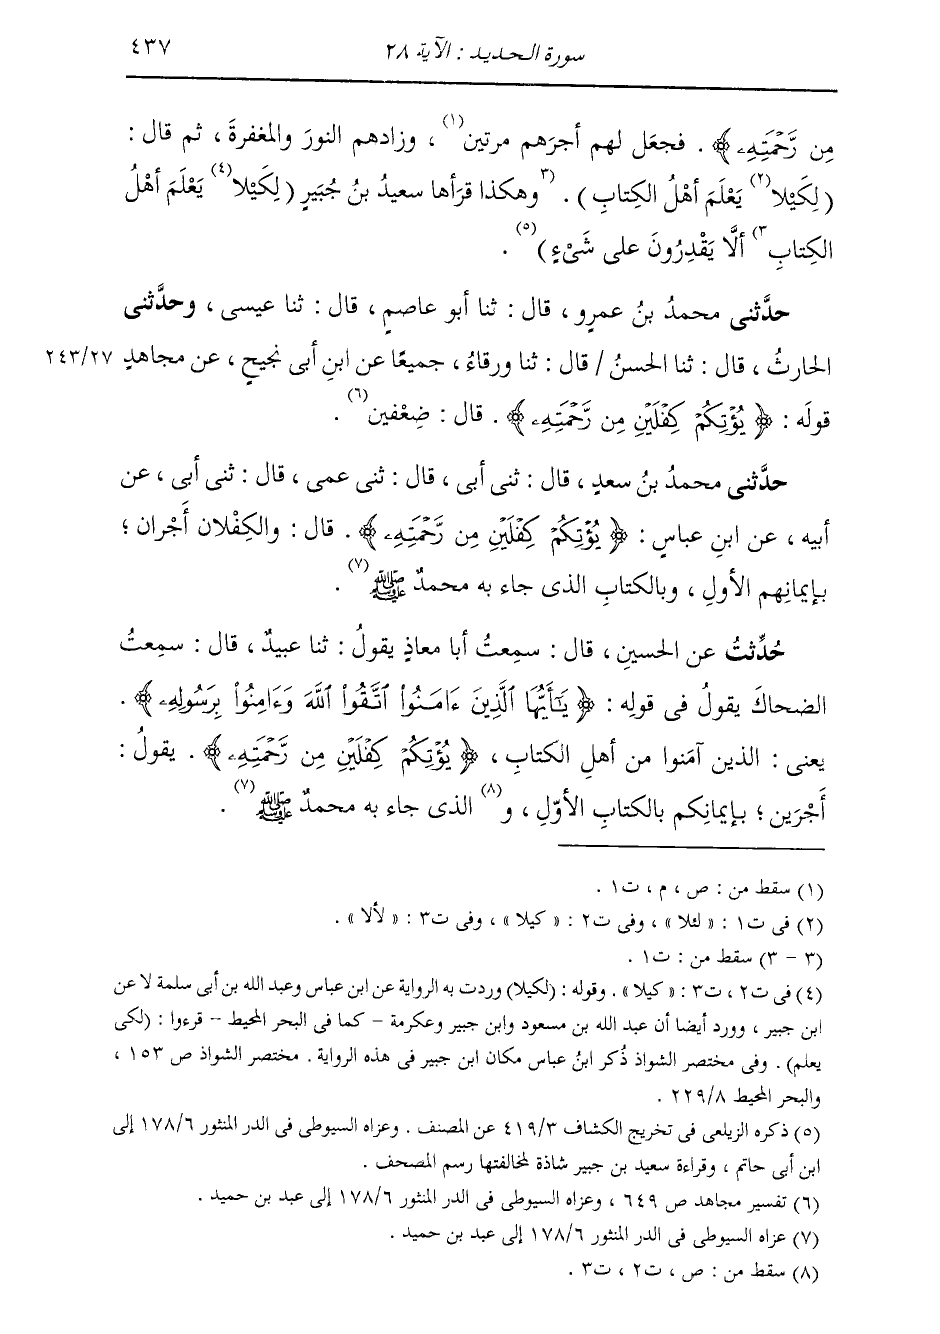 سورة الحديد : الآية ٢٨ ٤٣٧
مِن رَّحْمَتِهِۦ ﴾ . فجعَل لهم أجرَهم مرتين(١) ، وزادهم النورَ والمغفرةَ ، ثم قال :
( لِكَيْلا(٢) يَعْلَمَ أهْلُ الكِتابِ ) . (٣وهكذا قرَأها سعيدُ بنُ جُبَيرٍ ( لِكَيْلا(٤) يَعْلَمَ أهْلُ
الكِتابِ٣) ألَّا يَقْدِرُونَ على شَىْءٍ )(٥) .
حدَّثنى محمدُ بنُ عمرٍو ، قال : ثنا أبو عاصمٍ ، قال : ثنا عيسى ، وحدَّثنى
الحارثُ ، قال : ثنا الحسنُ / قال : ثنا ورقاءُ ، جميعًا عن ابنِ أبى نجيحٍ ، عن مجاهدٍ ٢٤٣/٢٧
قولَه : ﴿ يُؤْتِكُمْ كِفْلَيْنِ مِن رَّحْمَتِهِۦ ﴾ . قال : ضِعْفين(٦) .
حدَّثنى محمدُ بنُ سعدٍ ، قال : ثنى أبى ، قال : ثنى عمى ، قال : ثنى أبى ، عن
أبيه ، عن ابنِ عباسٍ : ﴿ يُؤْتِكُمْ كِفْلَيْنِ مِن رَّحْمَتِهِۦ ﴾ . قال : والكِفْلان أَجْران ؛
بإيمانِهم الأولِ ، وبالكتابِ الذى جاء به محمدٌ ﷺ(٧) .
حُدِّثتُ عن الحسينِ ، قال : سمِعتُ أبا معاذٍ يقولُ : ثنا عبيدٌ ، قال : سمِعتُ
الضحاكَ يقولُ فى قولِه : ﴿ يَٰٓأَيُّهَا ٱلَّذِينَ ءَامَنُوا۟ ٱتَّقُوا۟ ٱللَّهَ وَءَامِنُوا۟ بِرَسُولِهِۦ ﴾ .
يعنى : الذين آمَنوا من أهلِ الكتابِ ، ﴿ يُؤْتِكُمْ كِفْلَيْنِ مِن رَّحْمَتِهِۦ ﴾ . يقولُ :
أَجْرَين ؛ بإيمانِكم بالكتابِ الأوّلِ ، و(٨) الذى جاء به محمدٌ ﷺ(٧) .
(١) سقط من : ص ، م ، ت١ .
(٢) فى ت١ : « لئلا » ، وفى ت٢ : « كيلا » ، وفى ت٣ : « لألا » .
(٣ - ٣) سقط من : ت١ .
(٤) فى ت٢ ، ت٣ : « كيلا » . وقوله : (لكيلا) وردت به الرواية عن ابن عباس وعبد الله بن أبى سلمة لا عن
ابن جبير ، وورد أيضا أن عبد الله بن مسعود وابن جبير وعكرمة - كما فى البحر المحيط -- قرءوا : (لكى
يعلم) . وفى مختصر الشواذ ذُكر ابنُ عباس مكان ابن جبير فى هذه الرواية . مختصر الشواذ ص ١٥٣ ،
والبحر المحيط ٢٢٩/٨ .
(٥) ذكره الزيلعى فى تخريج الكشاف ٤١٩/٣ عن المصنف . وعزاه السيوطى فى الدر المنثور ١٧٨/٦ إلى
ابن أبى حاتم ، وقراءة سعيد بن جبير شاذة لمخالفتها رسم المصحف .
(٦) تفسير مجاهد ص ٦٤٩ ، وعزاه السيوطى فى الدر المنثور ١٧٨/٦ إلى عبد بن حميد .
(٧) عزاه السيوطى فى الدر المنثور ١٧٨/٦ إلى عبد بن حميد .
(٨) سقط من : ص ، ت٢ ، ت٣ .